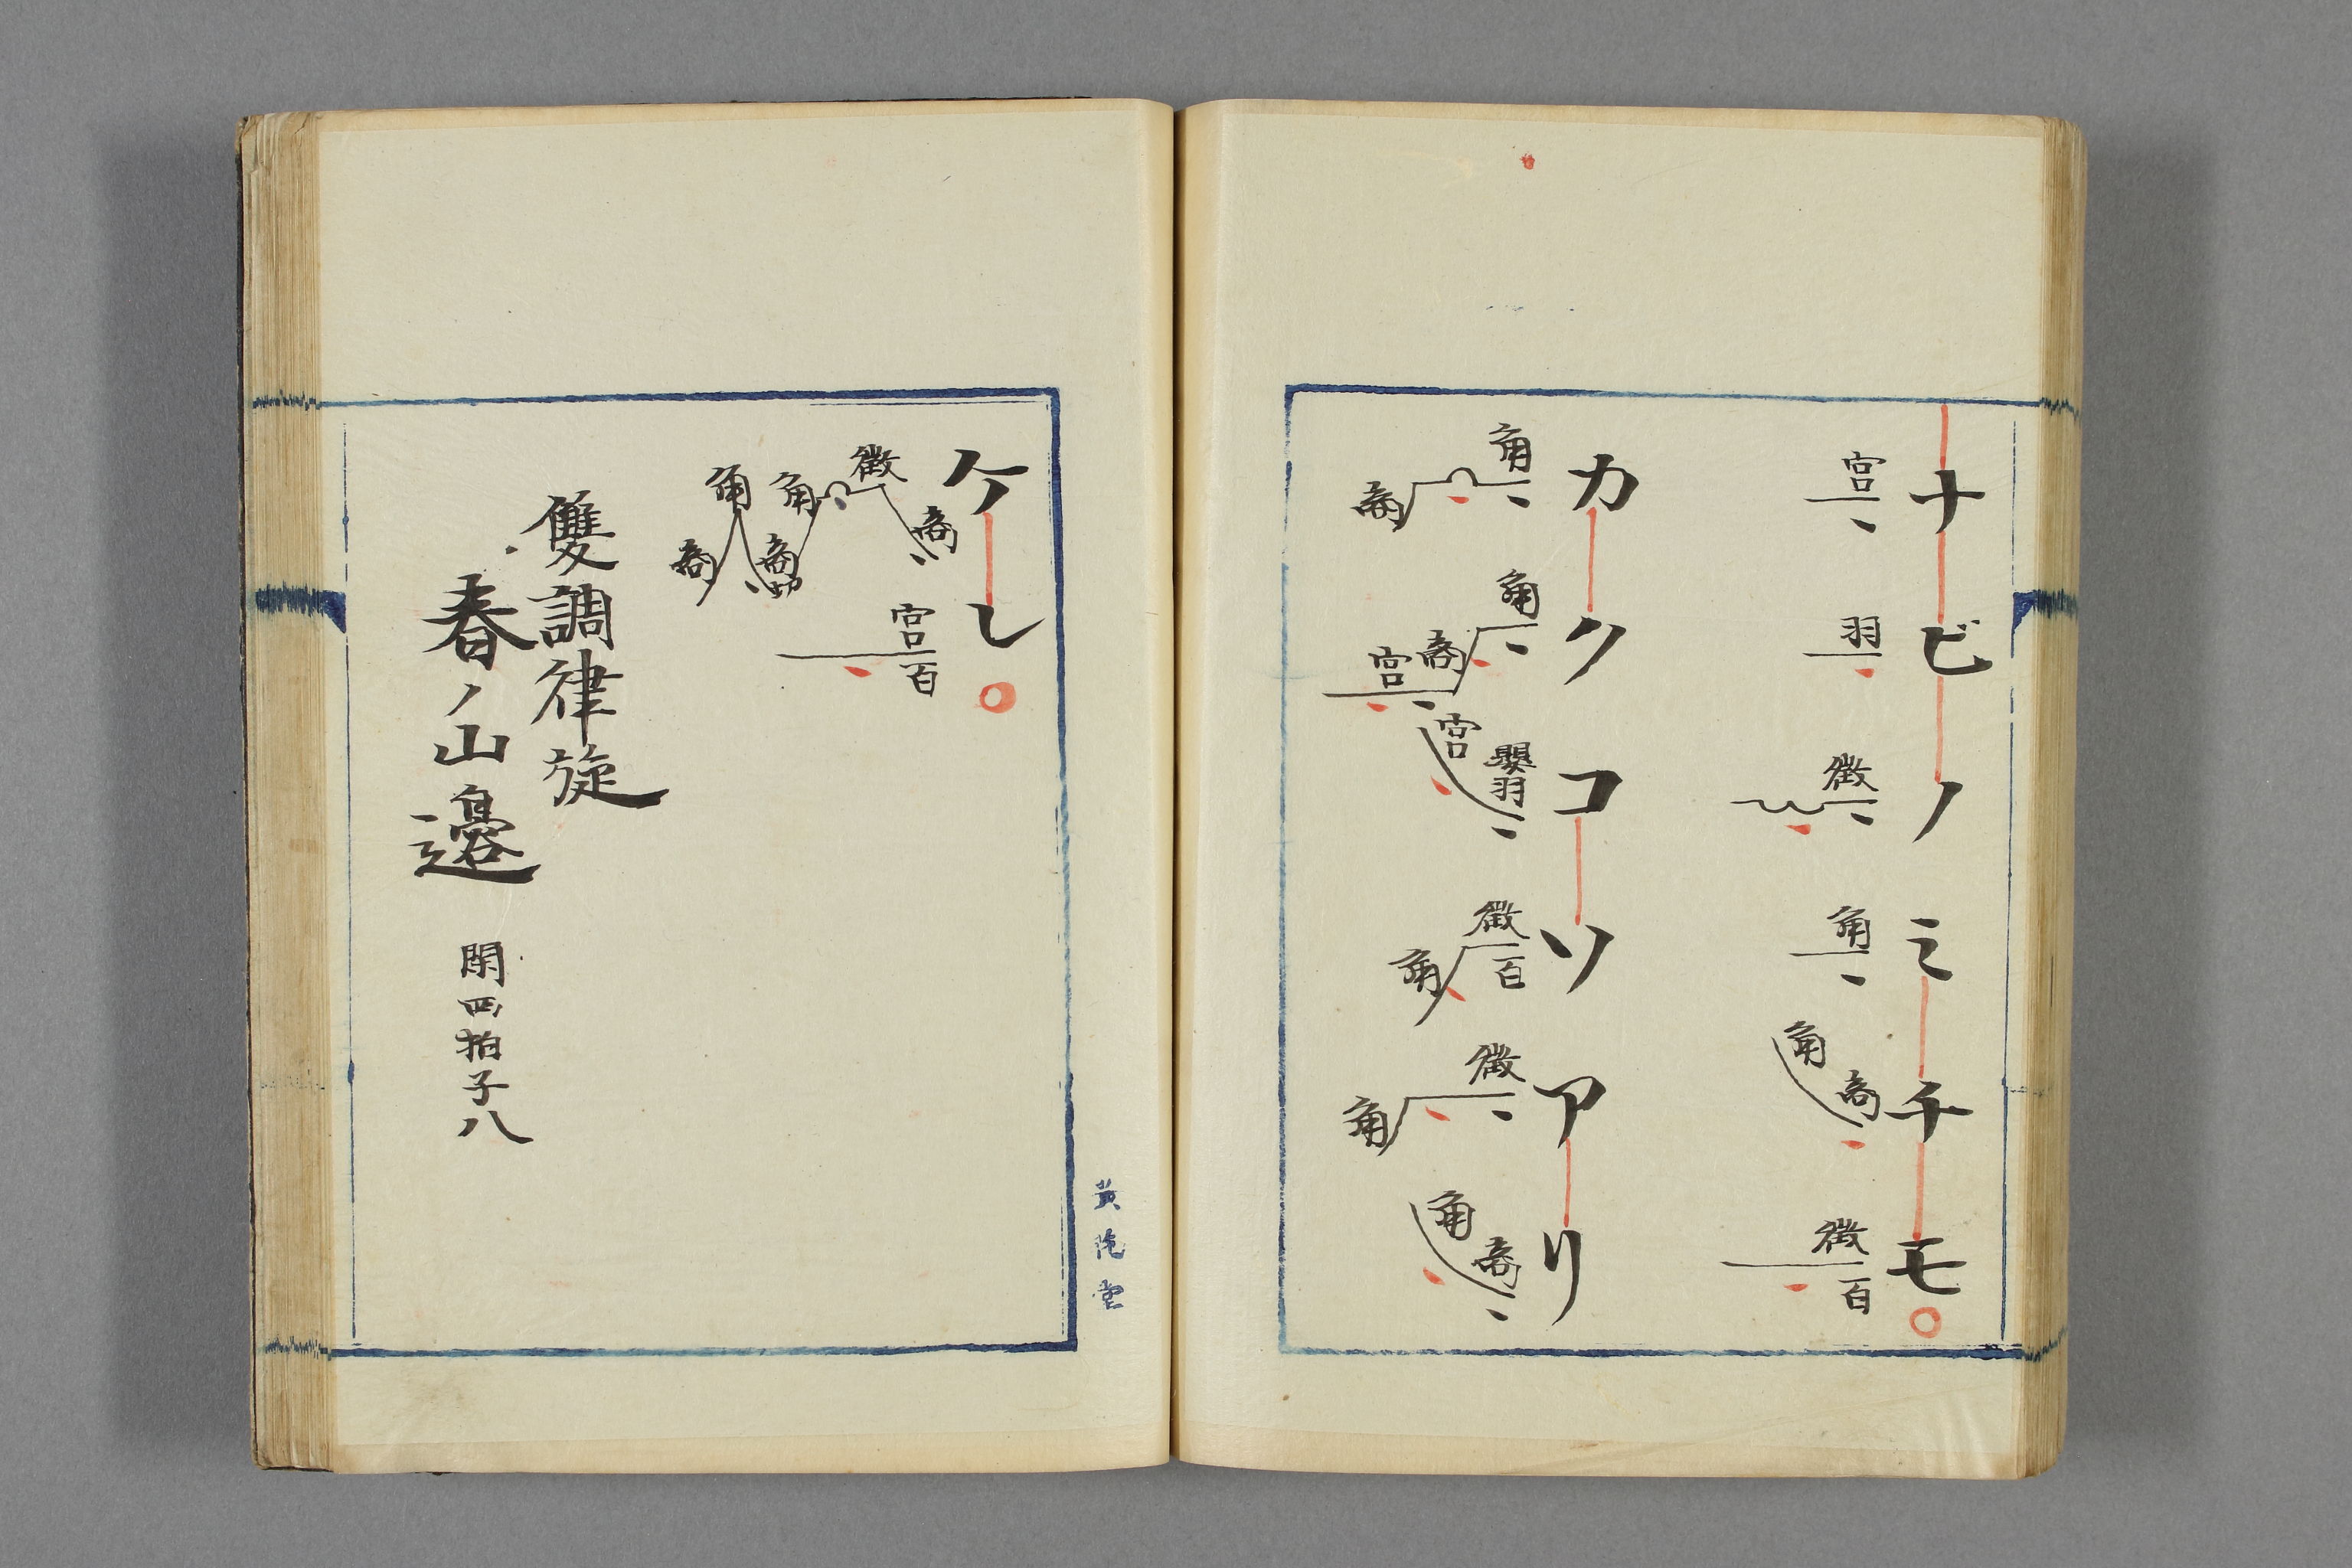 ナビノミチモ
宮
羽
徴
角
角 商
徴 百
カクコソアリ
角 商
角 商 宮
宮 嬰羽
徴 百 角
徴 角
角 商
ケレ
商 徴 角 商 角 商
宮 百
雙調律旋
春ノ山邊 閑四拍子八